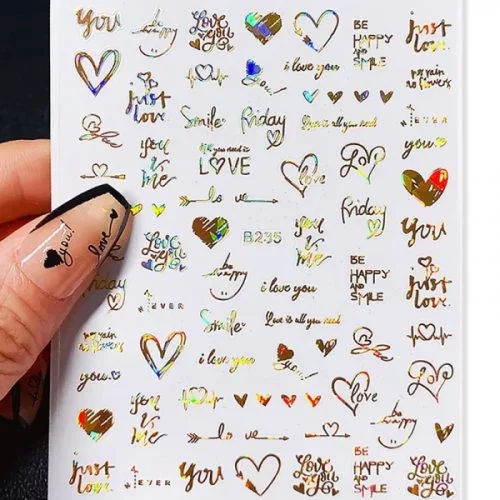 you
be happy
Love you
BE
HAPPY
AND
SMILE
just
love.
i love you
you!
no rain
no flowers
just
love.
Smile
friday
Love is all you need
NEVER
you
&
me
All you need is
LOVE
you
love
friday
you
you!
love
love you
B235
you
&
me
be
happy
BE
HAPPY
AND
SMILE
just
love.
friday
NEVER
i love you
Smile
Love is all you need
no rain
no flowers
i love you
you!
you
love
you
&
me
love
love
be
happy
just
love.
NEVER
you
Love you
BE
HAPPY
AND
SMILE
just
love.